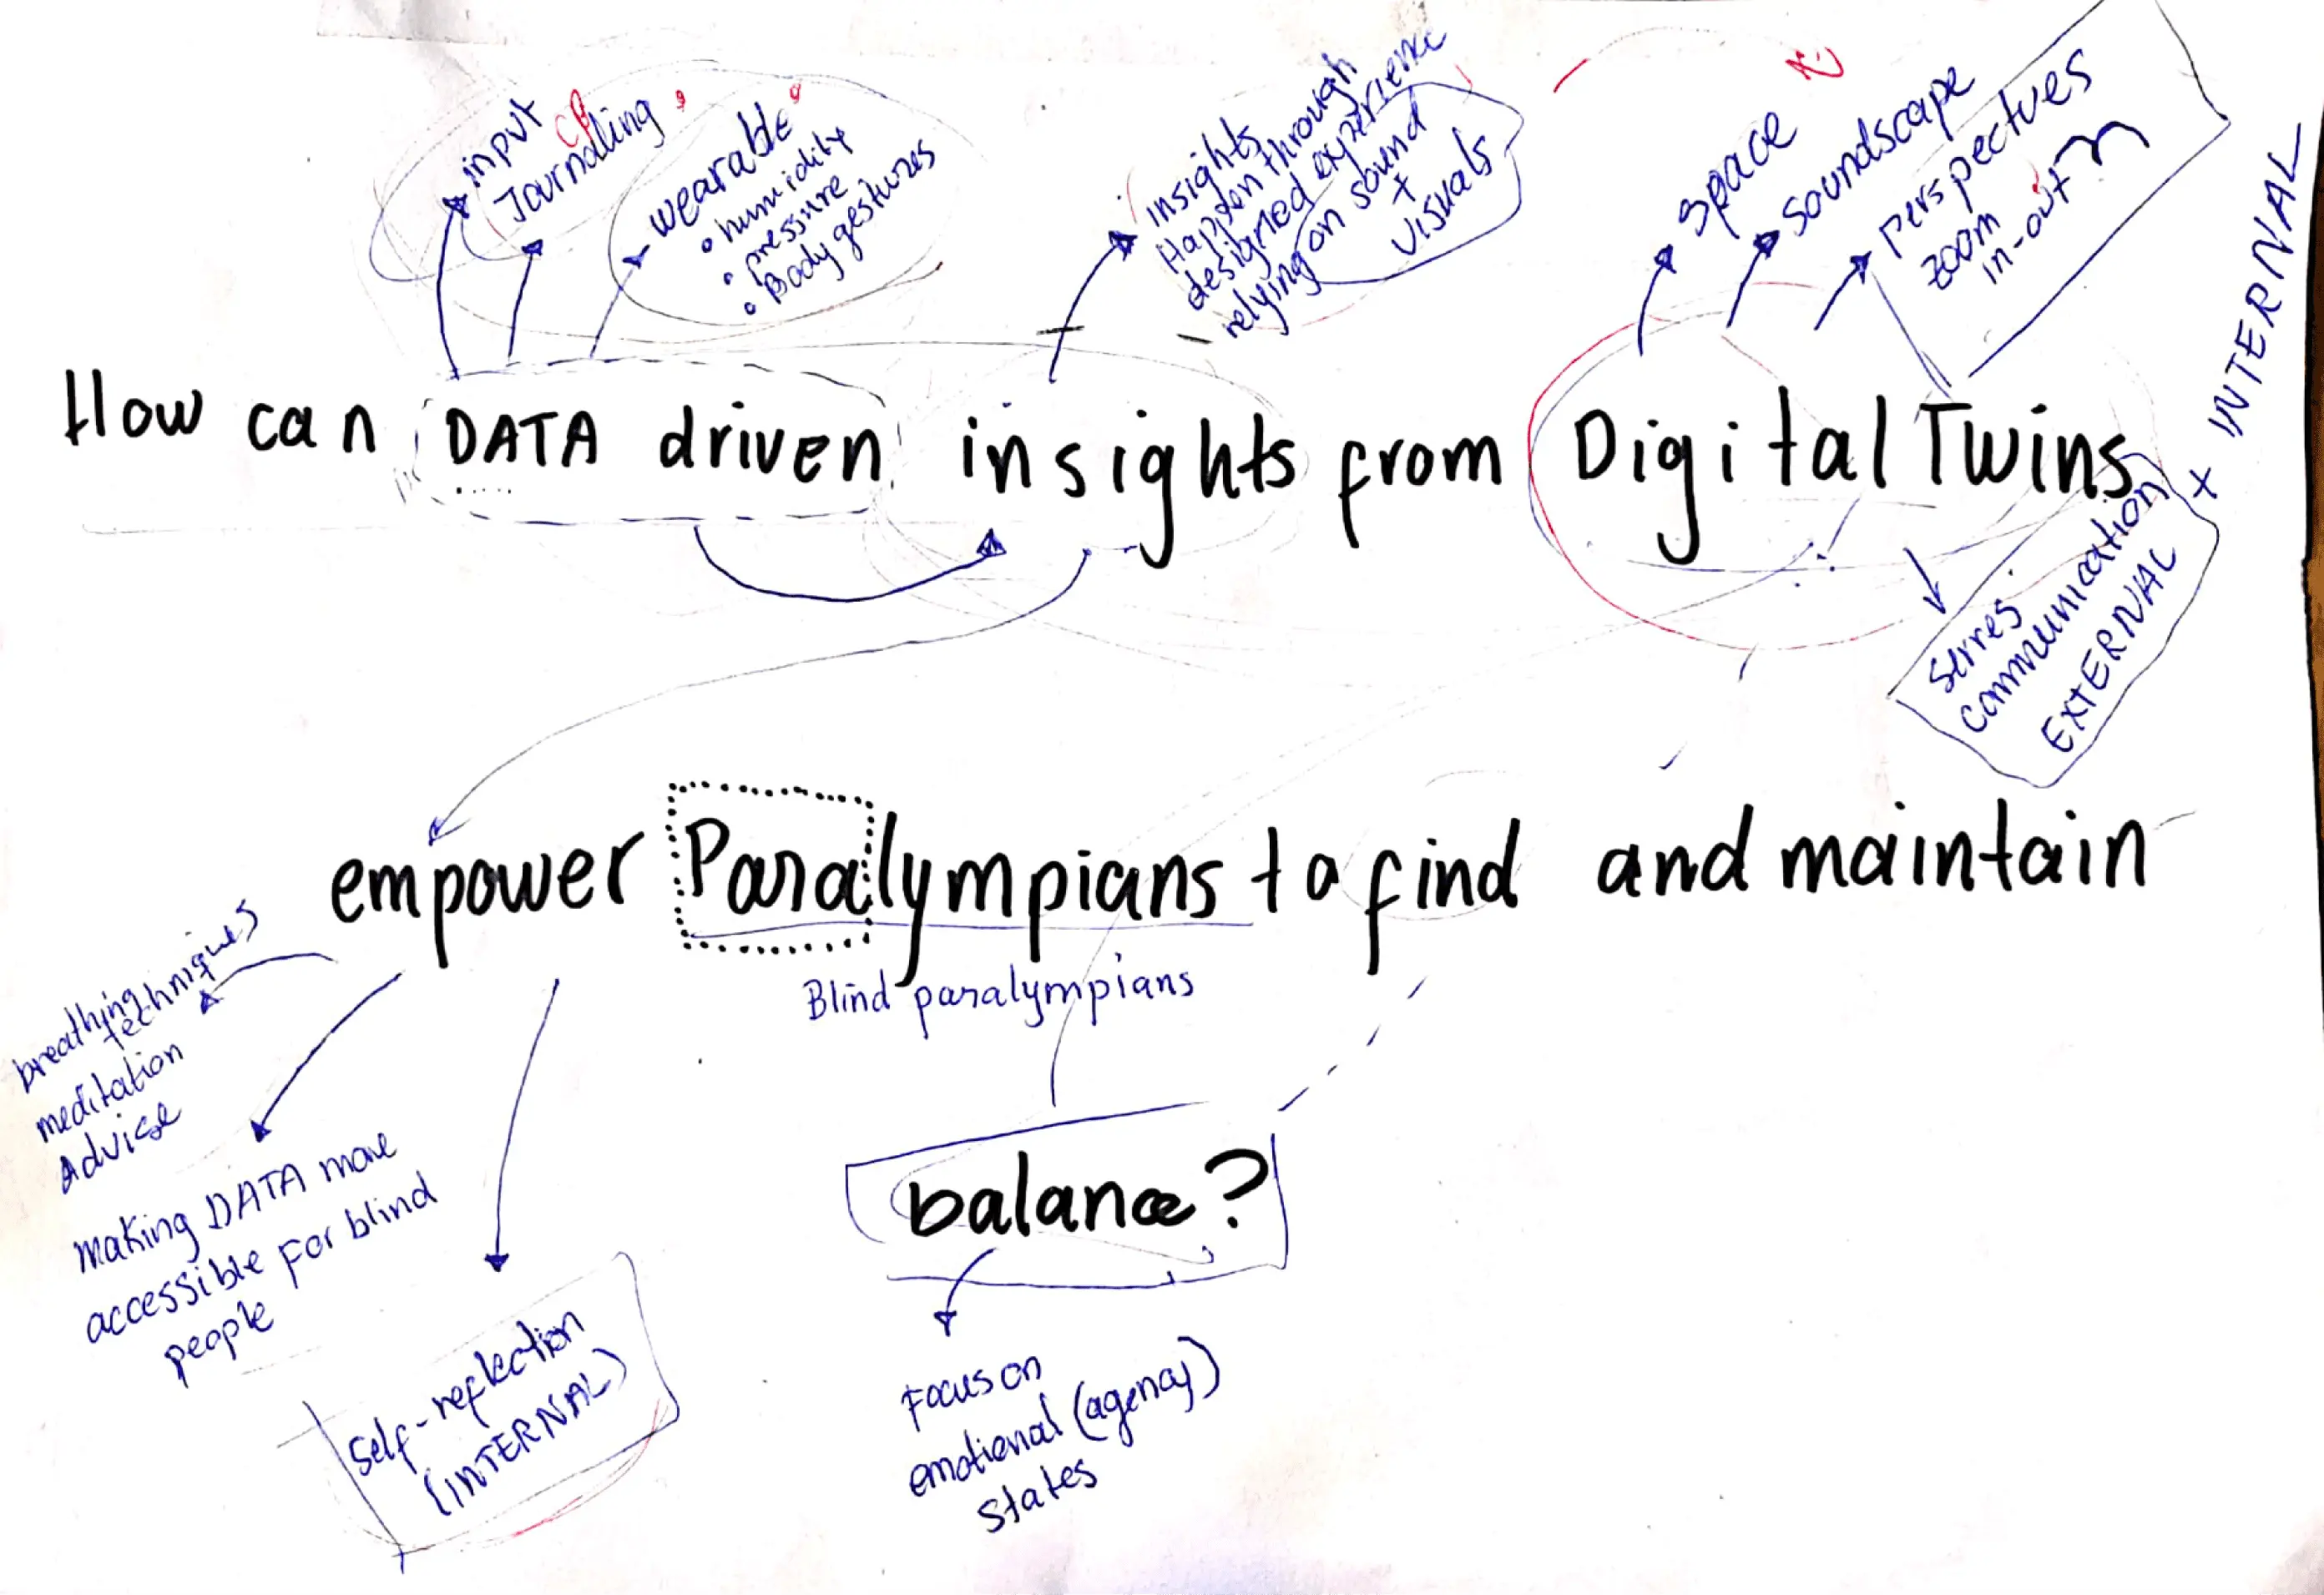 input
Journalling
wearable
• humidity
• pressure
• Body gestures
insights
Happen through
designed experience
relying on sound
+
visuals
space
soundscape
perspectives
zoom
in-out
+ INTERNAL
How can DATA driven insights from Digital Twins
communication
EXTERNAL
empower Paralympians to find and maintain
Blind paralympians
balance?
breathing
techniques
meditation
Advise
making DATA more
accessible for blind
people
Self-reflection
(INTERNAL)
Focus on
emotional (agency)
states